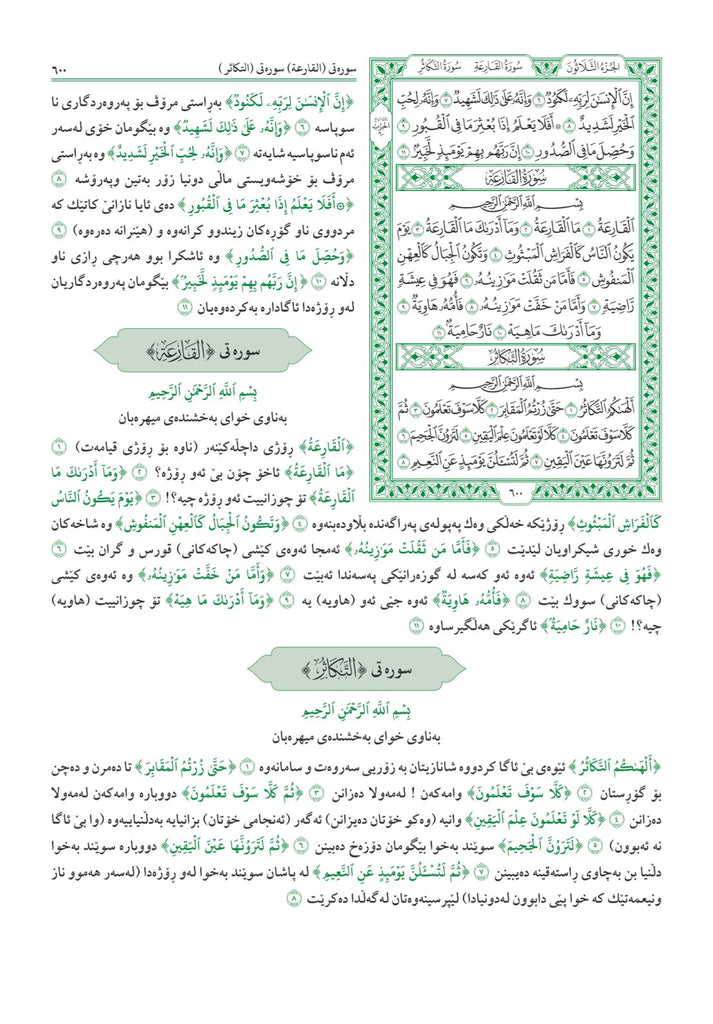 ٦٠٠
سورەتی (القارعة) سورەتی (التكاثر)
الجُزءُ الثَّلَاثُونَ سُورَةُ القَارِعَةِ سُورَةُ التَّكَاثُرِ
إِنَّ ٱلْإِنسَٰنَ لِرَبِّهِۦ لَكَنُودٌ ٦ وَإِنَّهُۥ عَلَىٰ ذَٰلِكَ لَشَهِيدٌ ٧ وَإِنَّهُۥ لِحُبِّ
ٱلْخَيْرِ لَشَدِيدٌ ٨ ۞ أَفَلَا يَعْلَمُ إِذَا بُعْثِرَ مَا فِى ٱلْقُبُورِ ٩
وَحُصِّلَ مَا فِى ٱلصُّدُورِ ١٠ إِنَّ رَبَّهُم بِهِمْ يَوْمَئِذٍ لَّخَبِيرٌۢ ١١
سُورَةُ القَارِعَةِ
بِسْمِ ٱللَّهِ ٱلرَّحْمَٰنِ ٱلرَّحِيمِ
ٱلْقَارِعَةُ ١ مَا ٱلْقَارِعَةُ ٢ وَمَآ أَدْرَىٰكَ مَا ٱلْقَارِعَةُ ٣ يَوْمَ
يَكُونُ ٱلنَّاسُ كَٱلْفَرَاشِ ٱلْمَبْثُوثِ ٤ وَتَكُونُ ٱلْجِبَالُ كَٱلْعِهْنِ
ٱلْمَنفُوشِ ٥ فَأَمَّا مَن ثَقُلَتْ مَوَٰزِينُهُۥ ٦ فَهُوَ فِى عِيشَةٍ
رَّاضِيَةٍ ٧ وَأَمَّا مَنْ خَفَّتْ مَوَٰزِينُهُۥ ٨ فَأُمُّهُۥ هَاوِيَةٌ ٩
وَمَآ أَدْرَىٰكَ مَا هِيَهْ ١٠ نَارٌ حَامِيَةٌۢ ١١
سُورَةُ التَّكَاثُرِ
بِسْمِ ٱللَّهِ ٱلرَّحْمَٰنِ ٱلرَّحِيمِ
أَلْهَىٰكُمُ ٱلتَّكَاثُرُ ١ حَتَّىٰ زُرْتُمُ ٱلْمَقَابِرَ ٢ كَلَّا سَوْفَ تَعْلَمُونَ ٣ ثُمَّ
كَلَّا سَوْفَ تَعْلَمُونَ ٤ كَلَّا لَوْ تَعْلَمُونَ عِلْمَ ٱلْيَقِينِ ٥ لَتَرَوُنَّ ٱلْجَحِيمَ ٦
ثُمَّ لَتَرَوُنَّهَا عَيْنَ ٱلْيَقِينِ ٧ ثُمَّ لَتُسْـَٔلُنَّ يَوْمَئِذٍ عَنِ ٱلنَّعِيمِ ٨
٦٠٠
﴿إِنَّ ٱلْإِنسَٰنَ لِرَبِّهِۦ لَكَنُودٌ﴾ بەڕاستی مرۆڤ بۆ پەروەردگاری نا
سوپاسە ٦ ﴿وَإِنَّهُۥ عَلَىٰ ذَٰلِكَ لَشَهِيدٌ﴾ وە بێگومان خۆی لەسەر
ئەم ناسوپاسیە شایەتە ٧ ﴿وَإِنَّهُۥ لِحُبِّ ٱلْخَيْرِ لَشَدِيدٌ﴾ وە بەڕاستی
مرۆڤ بۆ خۆشەویستی ماڵی دونیا زۆر بەتین وپەرۆشە ٨
﴿۞ أَفَلَا يَعْلَمُ إِذَا بُعْثِرَ مَا فِى ٱلْقُبُورِ﴾ دەی ئایا نازانێ کاتێك کە
مردووی ناو گۆڕەکان زیندوو کرانەوە و (هێنرانە دەرەوە) ٩
﴿وَحُصِّلَ مَا فِى ٱلصُّدُورِ﴾ وە ئاشکرا بوو هەرچی ڕازی ناو
دڵانە ١٠ ﴿إِنَّ رَبَّهُم بِهِمْ يَوْمَئِذٍ لَّخَبِيرٌۢ﴾ بێگومان پەروەردگاریان
لەو ڕۆژەدا ئاگادارە بەکردەوەیان ١١
سورەتی ﴿القَارِعَة﴾
بِسْمِ ٱللَّهِ ٱلرَّحْمَٰنِ ٱلرَّحِيمِ
بەناوی خوای بەخشندەی میهرەبان
﴿ٱلْقَارِعَةُ﴾ ڕۆژی داچڵەکێنەر (ناوە بۆ ڕۆژی قیامەت) ١
﴿مَا ٱلْقَارِعَةُ﴾ ئاخۆ چۆن بێ ئەو ڕۆژە؟ ٢ ﴿وَمَآ أَدْرَىٰكَ مَا
ٱلْقَارِعَةُ﴾ تۆ چوزانییت ئەو ڕۆژە چیە؟! ٣ ﴿يَوْمَ يَكُونُ ٱلنَّاسُ
كَٱلْفَرَاشِ ٱلْمَبْثُوثِ﴾ ڕۆژێکە خەڵکی وەك پەپولەی پەراگەندە بڵاودەبنەوە ٤ ﴿وَتَكُونُ ٱلْجِبَالُ كَٱلْعِهْنِ ٱلْمَنفُوشِ﴾ وە شاخەکان
وەك خوری شیکراویان لێدێت ٥ ﴿فَأَمَّا مَن ثَقُلَتْ مَوَٰزِينُهُۥ﴾ ئەمجا ئەوەی کێشی (چاکەکانی) قورس و گران بێت ٦
﴿فَهُوَ فِى عِيشَةٍ رَّاضِيَةٍ﴾ ئەوە ئەو کەسە لە گوزەرانێکی پەسەندا ئەبێت ٧ ﴿وَأَمَّا مَنْ خَفَّتْ مَوَٰزِينُهُۥ﴾ وە ئەوەی کێشی
(چاکەکانی) سووك بێت ٨ ﴿فَأُمُّهُۥ هَاوِيَةٌ﴾ ئەوە جێی ئەو (هاویە) یە ٩ ﴿وَمَآ أَدْرَىٰكَ مَا هِيَهْ﴾ تۆ چوزانییت (هاویە)
چیە؟! ١٠ ﴿نَارٌ حَامِيَةٌۢ﴾ ئاگرێکی هەڵگیرساوە ١١
سورەتی ﴿التَّكَاثُر﴾
بِسْمِ ٱللَّهِ ٱلرَّحْمَٰنِ ٱلرَّحِيمِ
بەناوی خوای بەخشندەی میهرەبان
﴿أَلْهَىٰكُمُ ٱلتَّكَاثُرُ﴾ ئێوەی بێ ئاگا کردووە شانازیتان بە زۆریی سەروەت و سامانەوە ١ ﴿حَتَّىٰ زُرْتُمُ ٱلْمَقَابِرَ﴾ تا دەمرن و دەچن
بۆ گۆڕستان ٢ ﴿كَلَّا سَوْفَ تَعْلَمُونَ﴾ وامەکەن ! لەمەولا دەزانن ٣ ﴿ثُمَّ كَلَّا سَوْفَ تَعْلَمُونَ﴾ دووبارە وامەکەن لەمەولا
دەزانن ٤ ﴿كَلَّا لَوْ تَعْلَمُونَ عِلْمَ ٱلْيَقِينِ﴾ وانیە (وەکو خۆتان دەیزانن) ئەگەر (ئەنجامی خۆتان) بزانیایە بەدڵنیاییەوە (وا بێ ئاگا
نە ئەبوون) ٥ ﴿لَتَرَوُنَّ ٱلْجَحِيمَ﴾ سوێند بەخوا بێگومان دۆزەخ دەبینن ٦ ﴿ثُمَّ لَتَرَوُنَّهَا عَيْنَ ٱلْيَقِينِ﴾ دووبارە سوێند بەخوا
دڵنیا بن بەچاوی ڕاستەقینە دەیبینن ٧ ﴿ثُمَّ لَتُسْـَٔلُنَّ يَوْمَئِذٍ عَنِ ٱلنَّعِيمِ﴾ لە پاشان سوێند بەخوا لەو ڕۆژەدا (لەسەر هەموو ناز
ونیعمەتێك کە خوا پێی دابوون لەدونیادا) لێپرسینەوەتان لەگەڵدا دەکرێت ٨